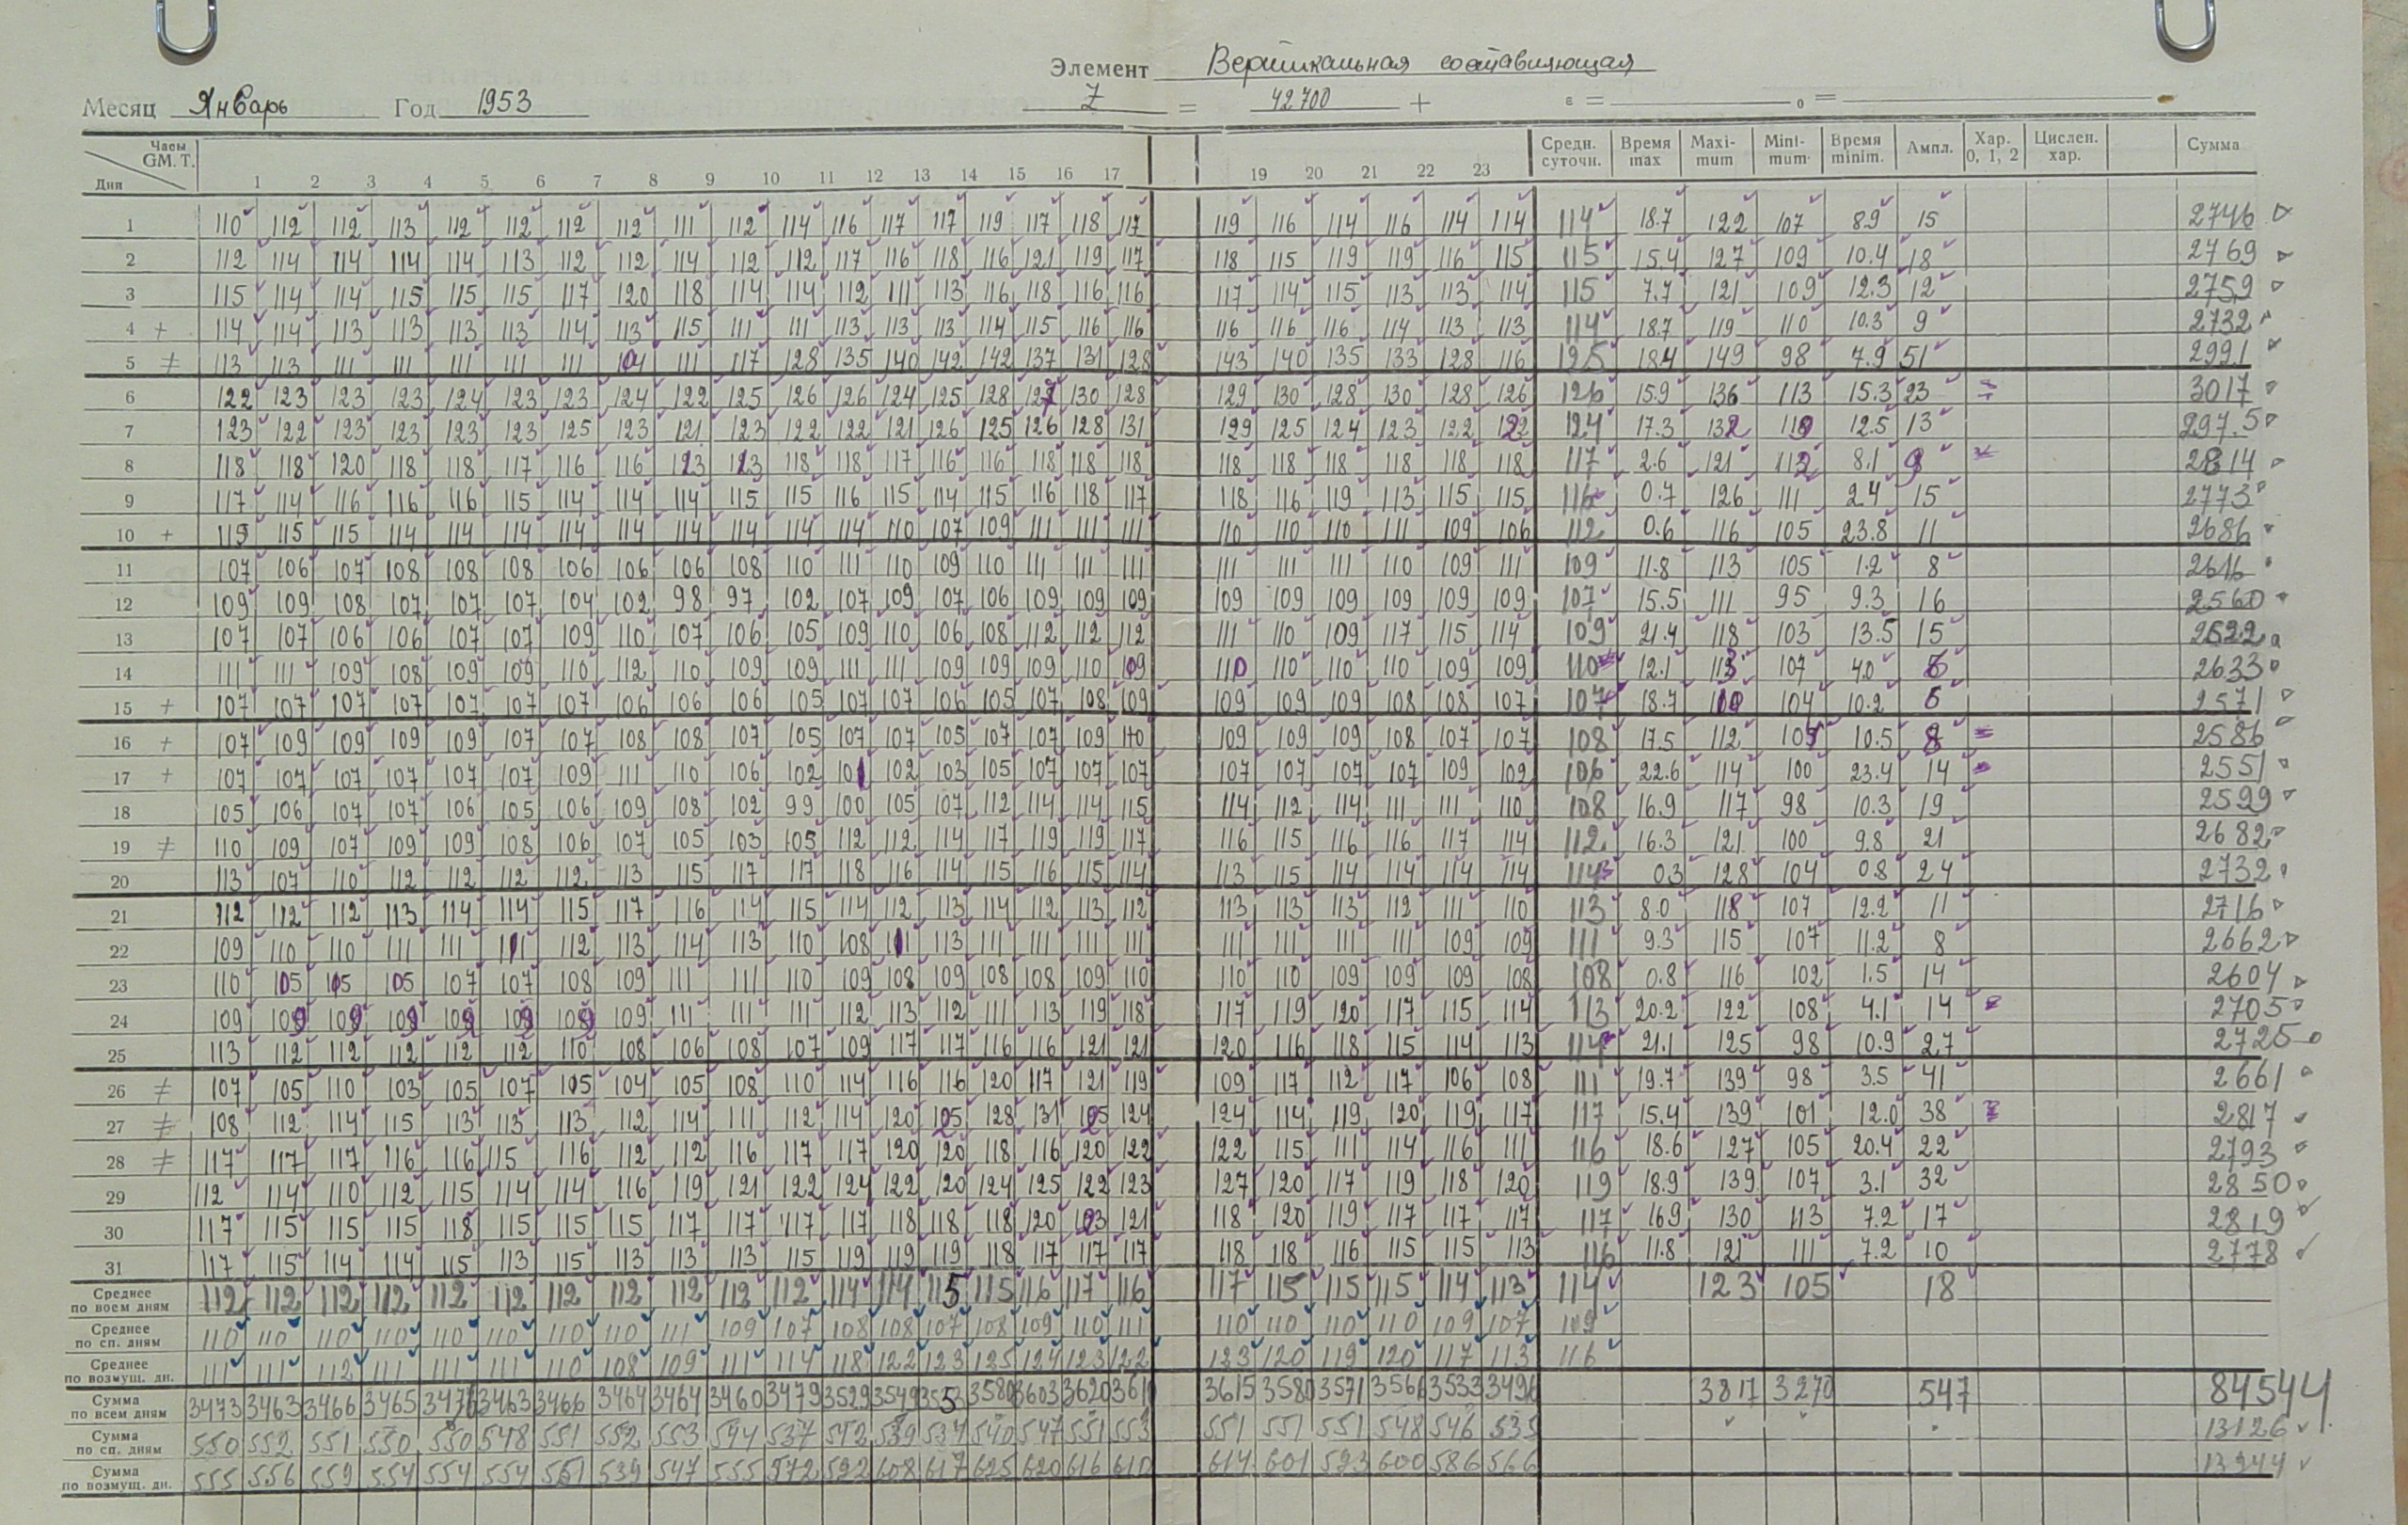 Элемент Вертикальная составляющая
Месяц Январь Год 1953 Z = 42700 + ε = o =
Часы GM. T. Дни 1 2 3 4 5 6 7 8 9 10 11 12 13 14 15 16 17 19 20 21 22 23 Средн. суточн. Время max Maxi-mum Mini-mum Время minim. Ампл. Хар. 0, 1, 2 Цислен. хар. Сумма
1 110 112 112 113 112 112 112 112 111 112 114 116 117 117 119 117 118 117 119 116 114 116 114 114 114 18.7 122 107 8.9 15 2746
2 112 114 114 114 114 113 112 112 114 112 112 117 116 118 116 121 119 117 118 115 119 119 116 115 115 15.4 127 109 10.4 18 2769
3 115 114 114 115 115 115 117 120 118 114 114 112 111 113 116 118 116 116 117 114 115 113 113 114 115 7.7 121 109 12.3 12 2759
4 + 114 114 113 113 113 113 114 113 115 111 111 113 113 113 114 115 116 116 116 116 116 114 113 113 114 18.7 119 110 10.3 9 2732
5 ≠ 113 113 111 111 111 111 111 104 111 117 128 135 140 142 142 137 131 128 143 140 135 133 128 116 125 18.4 149 98 7.9 51 2991
6 122 123 123 123 124 123 123 124 122 125 126 126 124 125 128 127 130 128 129 130 128 130 128 126 126 15.9 136 113 15.3 23 3017
7 123 122 123 123 123 123 125 123 121 123 122 122 121 126 125 126 128 131 129 125 124 123 122 122 124 17.3 132 119 12.5 13 2975
8 118 118 120 118 118 117 116 116 113 113 118 118 117 116 116 118 118 118 118 118 118 118 118 118 117 2.6 121 112 8.1 9 2814
9 117 114 116 116 116 115 114 114 114 115 115 116 115 114 115 116 118 117 118 116 119 113 115 115 116 0.7 126 111 2.4 15 2773
10 + 115 115 115 114 114 114 114 114 114 114 114 114 110 107 109 111 111 111 110 110 110 111 109 106 112 0.6 116 105 23.8 11 2686
11 107 106 107 108 108 108 106 106 106 108 110 111 110 109 110 111 111 111 111 111 111 110 109 111 109 11.8 113 105 1.2 8 2616
12 109 109 108 107 107 107 104 102 98 97 102 107 109 107 106 109 109 109 109 109 109 109 109 109 107 15.5 111 95 9.3 16 2560
13 107 107 106 106 107 107 109 110 107 106 105 109 110 106 108 112 112 112 111 110 109 117 115 114 109 21.4 118 103 13.5 15 2622
14 111 111 109 108 109 109 110 112 110 109 109 111 111 109 109 109 110 109 110 110 110 110 109 109 110 12.1 113 107 4.0 6 2633
15 + 107 107 107 107 107 107 107 106 106 106 105 107 107 106 105 107 108 109 109 109 109 108 108 107 107 18.7 104 10.2 6 2571
16 + 107 109 109 109 109 107 107 108 108 107 105 107 107 105 107 107 109 110 109 109 109 108 107 107 108 17.5 112 10.5 8 2586
17 + 107 107 107 107 107 107 109 111 110 106 102 101 102 103 105 107 107 107 107 107 107 107 109 109 106 22.6 114 100 23.4 14 2551
18 105 106 107 107 106 105 106 109 108 102 99 100 105 107 112 114 114 115 114 112 114 111 111 110 108 16.9 117 98 10.3 19 2599
19 ≠ 110 109 107 109 109 108 106 107 105 103 105 112 112 114 117 119 119 117 116 115 116 116 117 114 112 16.3 121 100 9.8 21 2682
20 113 107 110 112 112 112 112 113 115 117 117 118 116 114 115 116 115 114 113 115 114 114 114 114 114 0.3 128 104 0.8 24 2732
21 112 112 112 113 114 114 115 117 116 114 115 114 112 113 114 112 113 112 113 113 113 112 111 110 113 8.0 118 107 12.2 11 2716
22 109 110 110 111 111 111 112 113 114 113 110 108 111 113 111 111 111 111 111 111 111 111 109 109 111 9.3 115 107 11.2 8 2662
23 110 105 105 105 107 107 108 109 111 111 110 109 108 109 108 108 109 110 110 110 109 109 109 108 108 0.8 116 102 1.5 14 2604
24 109 109 109 109 109 109 109 109 111 111 111 112 113 112 111 113 119 118 117 119 120 117 115 114 113 20.2 122 108 4.1 14 2705
25 113 112 112 112 112 112 110 108 106 108 107 109 117 117 116 116 121 121 120 116 118 115 114 113 114 21.1 125 98 10.9 27 2725
26 ≠ 107 105 110 103 105 107 105 104 105 108 110 114 116 116 120 117 121 119 109 117 112 117 106 108 111 19.7 139 98 3.5 41 2661
27 ≠ 108 112 114 115 113 113 113 112 114 111 112 114 120 128 131 124 124 114 119 120 119 117 117 15.4 139 101 12.0 38 2817
28 ≠ 117 117 117 116 116 115 116 112 112 116 117 117 120 120 118 116 120 122 122 115 111 114 116 111 116 18.6 127 105 20.4 22 2793
29 112 114 110 112 115 114 114 116 119 121 122 124 122 120 124 125 122 123 127 120 117 119 118 120 119 18.9 139 107 3.1 32 2850
30 117 115 115 115 118 115 115 115 117 117 117 117 118 118 118 120 123 121 118 120 119 117 117 117 117 16.9 130 113 7.2 17 2819
31 117 115 114 114 115 113 115 113 113 113 115 119 119 119 118 117 117 117 118 118 116 115 115 113 116 11.8 121 111 7.2 10 2778
Среднее по всем дням 112 112 112 112 112 112 112 112 112 112 112 114 114 115 115 116 117 116 117 115 115 115 114 113 114 123 105 18
Среднее по сп. дням 110 110 110 110 110 110 110 110 111 109 107 108 108 107 108 109 110 111 110 110 110 110 109 107 109
Среднее по возмущ. дн. 111 111 112 111 111 111 110 108 109 111 114 118 122 123 125 124 123 122 123 120 119 120 117 113 116
Сумма по всем дням 3473 3463 3466 3465 3476 3463 3466 3464 3464 3460 3479 3529 3549 3553 3580 3603 3620 3611 3615 3580 3571 3561 3533 3496 3817 3270 547 84544
Сумма по сп. дням 550 552 551 550 550 548 551 552 553 544 537 542 539 534 540 547 551 553 551 551 551 548 546 535 13126
Сумма по возмущ. дн. 555 556 559 554 554 554 551 539 547 555 572 592 608 617 625 620 616 610 614 601 593 600 586 566 13944